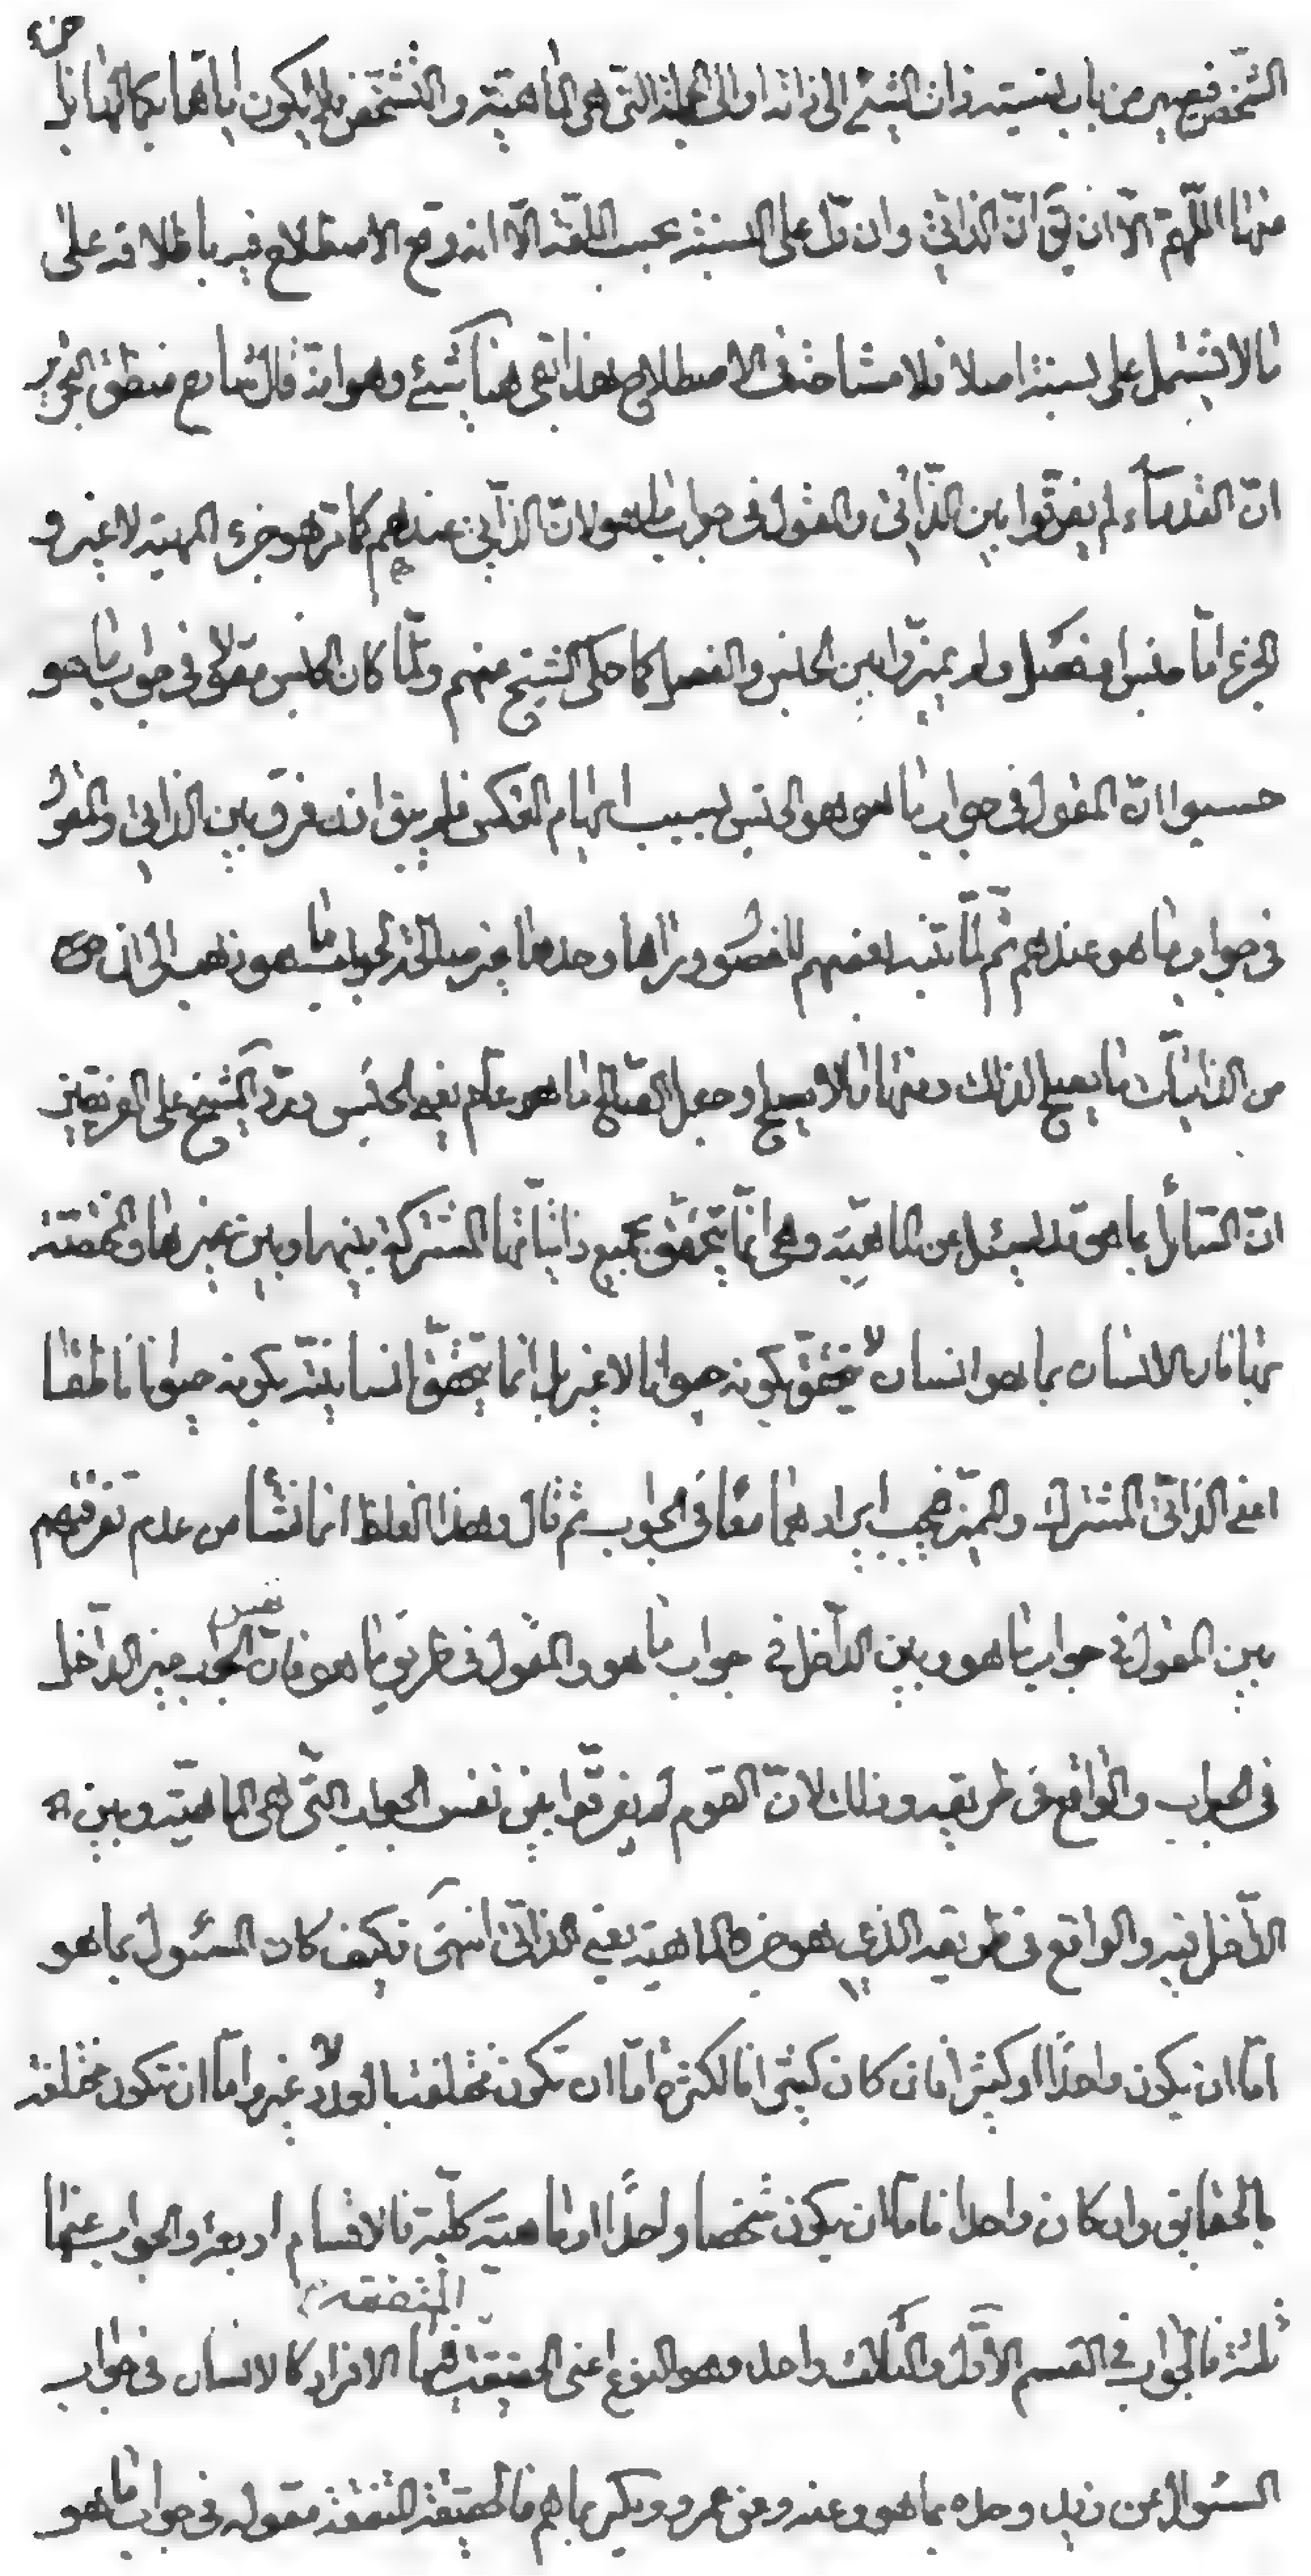 جزء
الشخص فيصير من باب نسبته ذات الشئ الى ذاته او الى الجملة التى هى الماهية والتشخص بل لا يكون اياها بكمالها بل
منها اللّهمّ الّا ان يقَ انّ الذاتىّ وان دلّ على النسبة بحسب اللغة الّا انه وقع الاصطلاح فيه باطلاقه على
ما لا يشتمل على نسبة اصلا فلا مشاحة فى الاصطلاح هذا بقى هنا شئ وهو انه قال شارح منطق التجريد
انّ القدمآء لم يفرّقوا بين الذّاتى والمقول فى جواب ما هو لانّ الذاتى عندهم كما مرّ هو جزء المهية لا غير و
الجزء امّا جنس او فصل ولم يميّزوا بين الجنس والفصل كما حكى الشيخ عنهم ولمّا كان الجنس مقولا فى جواب ما هو
حسبوا انّ المقول فى جواب ما هو هو الجنس بسبب ايهام العكس فلم يبق اذن فرق بين الذاتى والمقول
فى جواب ما هو عندهم ثم لمّا تنبه بعضهم للفصول وراها وحدها غير صالحة لجواب ما هو ذهب الى ان
من الذاتيات ما يصلح لذلك ومنها ما لا يصلح وجعل الصالح ما هو عام يعنى الجنس وردّ الشيخ على الفريقين
انّ السّائل بما هو قد يسئل عن الماهيّة وهى انّما يتحقق بجميع ذاتياتها المشتركة بينها وبين غيرها والمختصّة
بها فان الانسان بما هو انسان لا يتحقق بكونه حيوانا لا غير بل انما يتحقّق انسانيته بكونه حيوانا ناطقا
اعنى الذاتى المشترك والمميّز فيجب ايرادهما معًا فى الجواب ثم قال وهذا الغلط انما نشأ من عدم تفرقتهم
بين المقول فى جواب ما هو وبين الداخل فى جواب ما هو والمقول فى طريق ما هو فانّ نفس الجواب غير الداخل
فى الجواب والواقع فى طريقه وذلك لانّ القوم لم يفرّقوا بين نفس الجواب التّى هى الماهيّة وبين
الدّاخل فيه والواقع فى طريقه الذى هو جزء الماهية يعنى الذاتىّ انتهى فكيف كان المسئول بما هو
امّا ان يكون واحدًا او كثيرا فان كان كثيرا فالكثرة امّا ان تكون مختلفة بالعدد لا غير وامّا ان تكون مختلفة
بالحقايق وان كان واحدا فامّا ان يكون شخصا واحدًا او ماهية كليّة فالاقسام اربعة والجواب عنها
ثلثة فالجواب فى القسم الاوّل والثالث واحد وهو النوع اعنى الحقيقة المتفقة فيها الافراد كالانسان فى جواب
السئوال عن زيد وحده بما هو وعنه وعن عمرو وبكر بما هم فالحقيقة المتفقة مقولة فى جواب ما هو